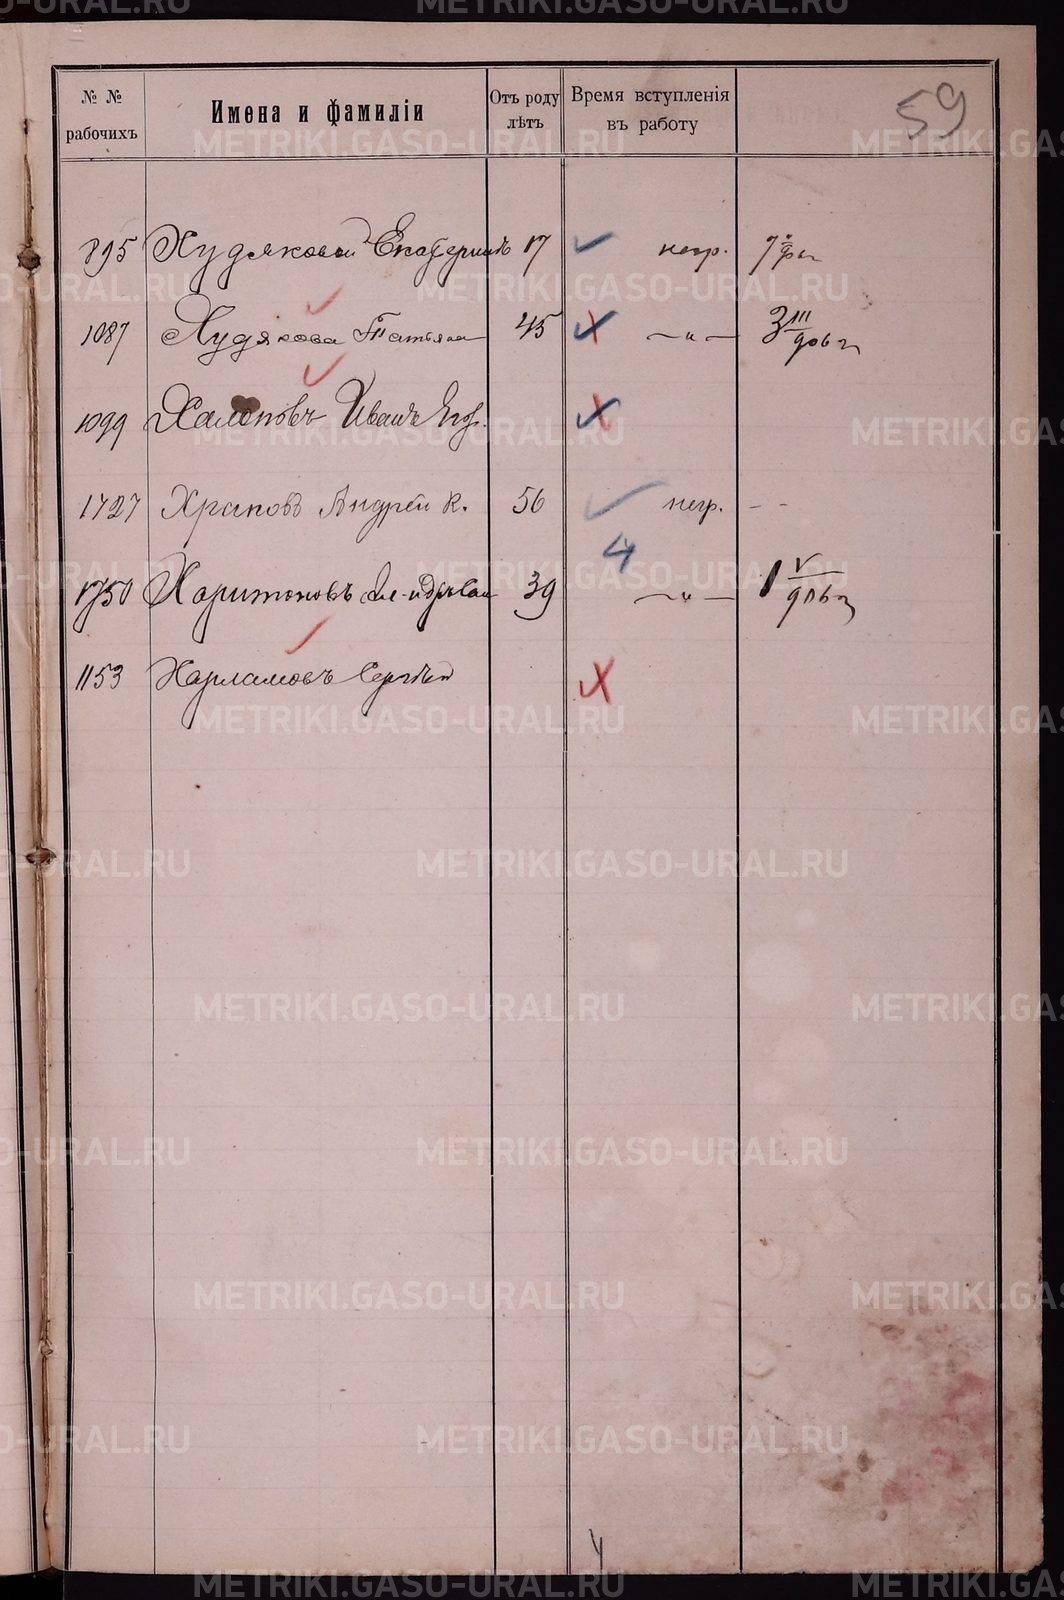 59
№ № рабочихъ Имена и фамиліи Отъ роду лѣтъ Время вступленія въ работу
895 Худякова Екатерина 17 негр.
1087 Худякова Татьяна 45 —„— 3 III
1099 Иванъ Егор.
1727 Храповъ Андрей К. 56 негр. - -
4
1750 Харитоновъ 39 —„— 1 V
1153 Харламовъ Сергѣй
METRIKI.GASO-URAL.RU